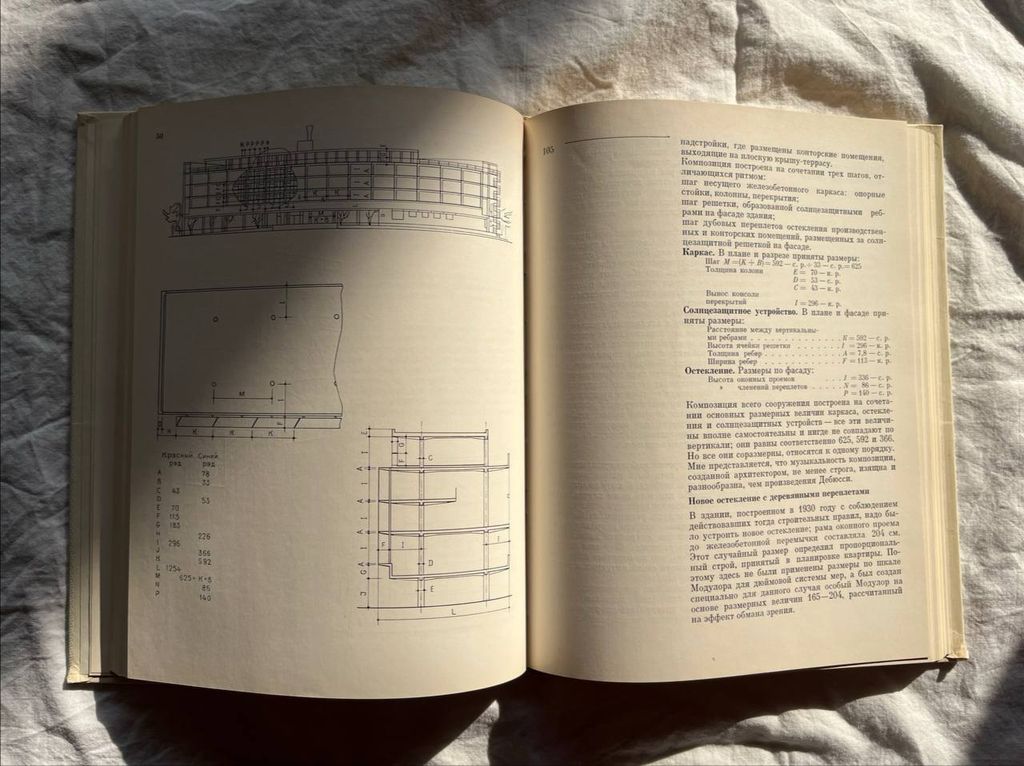 50
Красный ряд Синий ряд
A 78
B 33
C 43
D 53
E 70
F 113
G 183
H 226
I 296
J 366
K 592
L 1254
M 625 = K+B
N 86
P 140
M
K K K K
G
F I
D
E
L
105
надстройки, где размещены конторские помещения,
выходящие на плоскую крышу-террасу.
Композиция построена на сочетании трех шагов, от-
личающихся ритмом:
шаг несущего железобетонного каркаса: опорные
стойки, колонны, перекрытия;
шаг решетки, образованной солнцезащитными реб-
рами на фасаде здания;
шаг дубовых переплетов остекления производствен-
ных и конторских помещений, размещенных за солн-
цезащитной решеткой на фасаде.
Каркас. В плане и разрезе приняты размеры:
Шаг M = (K + B) = 592 — с. р. + 33 — с. р. = 625
Толщина колонн E = 70 — к. р.
D = 53 — с. р.
C = 43 — к. р.
Вынос консоли
перекрытий I = 296 — к. р.
Солнцезащитное устройство. В плане и фасаде при-
няты размеры:
Расстояние между вертикальны-
ми ребрами . . . . . . . . . . . . K = 592 — с. р.
Высота ячейки решетки . . . . . . I = 296 — к. р.
Толщина ребер . . . . . . . . . . . A = 7,8 — с. р.
Ширина ребер . . . . . . . . . . . F = 113 — к. р.
Остекление. Размеры по фасаду:
Высота оконных проемов . . . . I = 336 — с. р.
» членений переплетов . . . . N = 86 — с. р.
P = 140 — с. р.
Композиция всего сооружения построена на сочета-
нии основных размерных величин каркаса, остекле-
ния и солнцезащитных устройств — все эти величи-
ны вполне самостоятельны и нигде не совпадают по
вертикали; они равны соответственно 625, 592 и 366.
Но все они соразмерны, относятся к одному порядку.
Мне представляется, что музыкальность композиции,
созданной архитектором, не менее строга, изящна и
разнообразна, чем произведения Дебюсси.
Новое остекление с деревянными переплетами
В здании, построенном в 1930 году с соблюдением
действовавших тогда строительных правил, надо бы-
ло устроить новое остекление; рама оконного проема
до железобетонной перемычки составляла 204 см.
Этот случайный размер определил пропорциональ-
ный строй, принятый в планировке квартиры. По-
этому здесь не были применены размеры по шкале
Модулора для дюймовой системы мер, а был создан
специально для данного случая особый Модулор на
основе размерных величин 165—204, рассчитанный
на эффект обмана зрения.